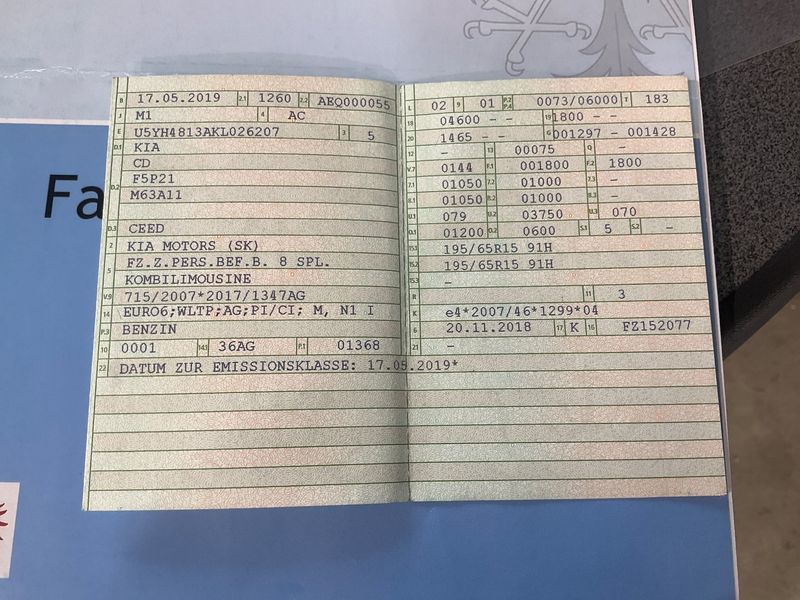 Fa
B 17.05.2019 2.1 1260 2.2 AEQ000055
J M1 4 AC
E U5YH4813AKL026207 3 5
D.1 KIA
CD
D.2 F5P21
M63A11
D.3 CEED
2 KIA MOTORS (SK)
5 FZ.Z.PERS.BEF.B. 8 SPL.
KOMBILIMOUSINE
V.9 715/2007*2017/1347AG
14 EURO6;WLTP;AG;PI/CI; M, N1 I
P.3 BENZIN
10 0001 14.1 36AG P.1 01368
22 DATUM ZUR EMISSIONSKLASSE: 17.05.2019*
L 02 9 01 P.2 P.4 0073/06000 T 183
18 04600 - - 19 1800 - -
20 1465 - - G 001297 - 001428
12 - 13 00075 Q -
V.7 0144 F.1 001800 F.2 1800
7.1 01050 7.2 01000 7.3 -
8.1 01050 8.2 01000 8.3 -
U.1 079 U.2 03750 U.3 070
O.1 01200 O.2 0600 S.1 5 S.2 -
15.1 195/65R15 91H
15.2 195/65R15 91H
15.3 -
R 11 3
K e4*2007/46*1299*04
6 20.11.2018 17 K 16 FZ152077
21 -